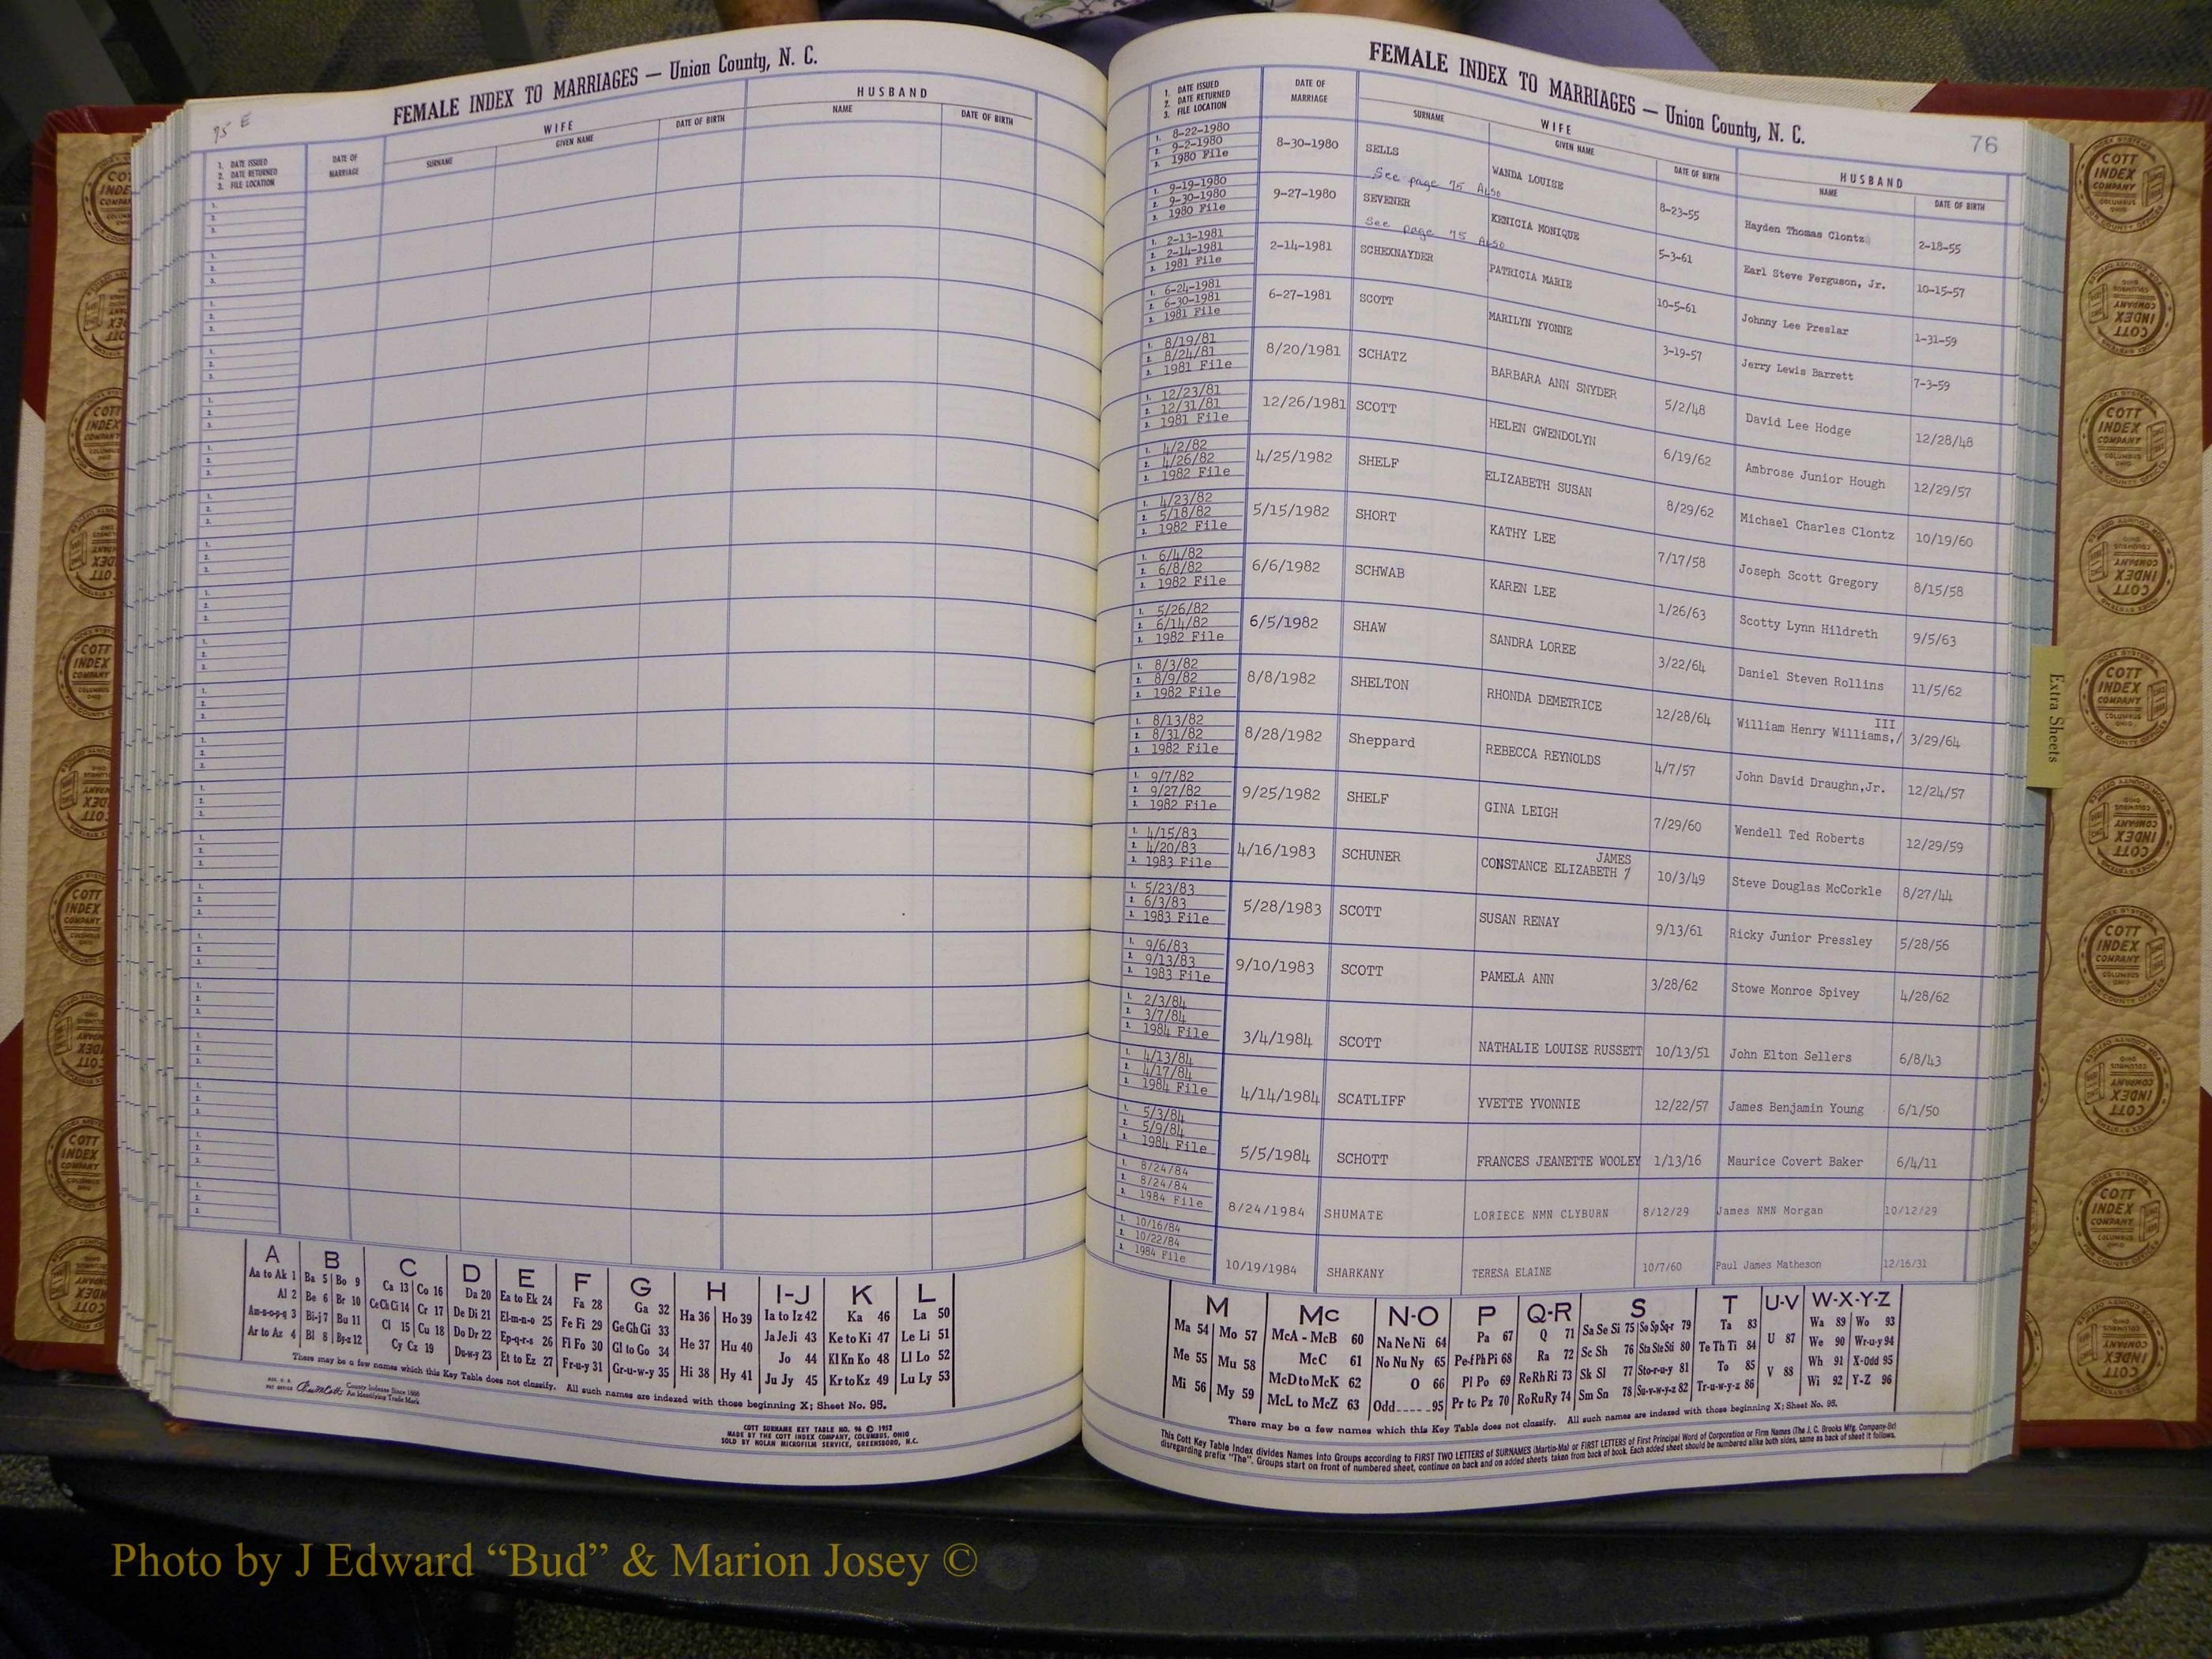 75 E
FEMALE INDEX TO MARRIAGES — Union County, N. C.
1. DATE ISSUED
2. DATE RETURNED
3. FILE LOCATION
DATE OF MARRIAGE
WIFE
SURNAME
GIVEN NAME
DATE OF BIRTH
HUSBAND
NAME
DATE OF BIRTH
A B C D E F G H I-J K L
Aa to Ak 1 Ba 5 Bo 9 Ca 13 Co 16 Da 20 Ea to Ek 24 Fa 28 Ga 32 Ha 36 Ho 39 Ia to Iz 42 Ka 46 La 50
Al 2 Be 6 Br 10 Ce Ch Ci 14 Cr 17 De Di 21 El-m-n-o 25 Fe Fi 29 Ge Gh Gi 33 Ja Je Ji 43 Ke to Ki 47 Le Li 51
Am-n-o-p-q 3 Bi-j 7 Bu 11 Cl 15 Cu 18 Do Dr 22 Ep-q-r-s 26 Fl Fo 30 Gl to Go 34 He 37 Hu 40 Jo 44 Kl Kn Ko 48 Ll Lo 52
Ar to Az 4 Bl 8 By-z 12 Cy Cz 19 Du-w-y 23 Et to Ez 27 Fr-u-y 31 Gr-u-w-y 35 Hi 38 Hy 41 Ju Jy 45 Kr to Kz 49 Lu Ly 53
There may be a few names which this Key Table does not classify. All such names are indexed with those beginning X; Sheet No. 95.
County Indexes Since 1888
An Identifying Trade Mark
COTT SURNAME KEY TABLE NO. 96 © 1952
MADE BY THE COTT INDEX COMPANY, COLUMBUS, OHIO
SOLD BY NOLAN MICROFILM SERVICE, GREENSBORO, N.C.
FEMALE INDEX TO MARRIAGES — Union County, N. C.
76
1. DATE ISSUED
2. DATE RETURNED
3. FILE LOCATION
DATE OF MARRIAGE
WIFE
SURNAME
GIVEN NAME
DATE OF BIRTH
HUSBAND
NAME
DATE OF BIRTH
1. 8-22-1980
2. 9-2-1980
3. 1980 File
8-30-1980 SELLS WANDA LOUISE 8-23-55 Hayden Thomas Clontz 2-18-55
See page 75 Also
1. 9-19-1980
2. 9-30-1980
3. 1980 File
9-27-1980 SEVENER KENICIA MONIQUE 5-3-61 Earl Steve Ferguson, Jr. 10-15-57
See page 75 Also
1. 2-13-1981
2. 2-14-1981
3. 1981 File
2-14-1981 SCHEXNAYDER PATRICIA MARIE 10-5-61 Johnny Lee Preslar 1-31-59
1. 6-24-1981
2. 6-30-1981
3. 1981 File
6-27-1981 SCOTT MARILYN YVONNE 3-19-57 Jerry Lewis Barrett 7-3-59
1. 8/19/81
2. 8/24/81
3. 1981 File
8/20/1981 SCHATZ BARBARA ANN SNYDER 5/2/48 David Lee Hodge 12/28/48
1. 12/23/81
2. 12/31/81
3. 1981 File
12/26/1981 SCOTT HELEN GWENDOLYN 6/19/62 Ambrose Junior Hough 12/29/57
1. 4/2/82
2. 4/26/82
3. 1982 File
4/25/1982 SHELF ELIZABETH SUSAN 8/29/62 Michael Charles Clontz 10/19/60
1. 4/23/82
2. 5/18/82
3. 1982 File
5/15/1982 SHORT KATHY LEE 7/17/58 Joseph Scott Gregory 8/15/58
1. 6/4/82
2. 6/8/82
3. 1982 File
6/6/1982 SCHWAB KAREN LEE 1/26/63 Scotty Lynn Hildreth 9/5/63
1. 5/26/82
2. 6/14/82
3. 1982 File
6/5/1982 SHAW SANDRA LOREE 3/22/64 Daniel Steven Rollins 11/5/62
1. 8/3/82
2. 8/9/82
3. 1982 File
8/8/1982 SHELTON RHONDA DEMETRICE 12/28/64 William Henry Williams,/ III 3/29/64
1. 8/13/82
2. 8/31/82
3. 1982 File
8/28/1982 Sheppard REBECCA REYNOLDS 4/7/57 John David Draughn,Jr. 12/24/57
1. 9/7/82
2. 9/27/82
3. 1982 File
9/25/1982 SHELF GINA LEIGH 7/29/60 Wendell Ted Roberts 12/29/59
1. 4/15/83
2. 4/20/83
3. 1983 File
4/16/1983 SCHUNER CONSTANCE ELIZABETH / JAMES 10/3/49 Steve Douglas McCorkle 8/27/44
1. 5/23/83
2. 6/3/83
3. 1983 File
5/28/1983 SCOTT SUSAN RENAY 9/13/61 Ricky Junior Pressley 5/28/56
1. 9/6/83
2. 9/13/83
3. 1983 File
9/10/1983 SCOTT PAMELA ANN 3/28/62 Stowe Monroe Spivey 4/28/62
1. 2/3/84
2. 3/7/84
3. 1984 File
3/4/1984 SCOTT NATHALIE LOUISE RUSSETT 10/13/51 John Elton Sellers 6/8/43
1. 4/13/84
2. 4/17/84
3. 1984 File
4/14/1984 SCATLIFF YVETTE YVONNIE 12/22/57 James Benjamin Young 6/1/50
1. 5/3/84
2. 5/9/84
3. 1984 File
5/5/1984 SCHOTT FRANCES JEANETTE WOOLEY 1/13/16 Maurice Covert Baker 6/4/11
1. 8/24/84
2. 8/24/84
3. 1984 File
8/24/1984 SHUMATE LORIECE NMN CLYBURN 8/12/29 James NMN Morgan 10/12/29
1. 10/16/84
2. 10/22/84
3. 1984 File
10/19/1984 SHARKANY TERESA ELAINE 10/7/60 Paul James Matheson 12/16/31
Extra Sheets
M Mc N-O P Q-R S T U-V W-X-Y-Z
Ma 54 Mo 57 McA - McB 60 Na Ne Ni 64 Pa 67 Q 71 Sa Se Si 75 So Sp Sq-r 79 Ta 83 U 87 Wa 89 Wo 93
Me 55 Mu 58 McC 61 No Nu Ny 65 Pe-f Ph Pi 68 Ra 72 Sc Sh 76 Sta Ste Sti 80 Te Th Ti 84 We 90 Wr-u-y 94
McD to McK 62 O 66 Pl Po 69 Re Rh Ri 73 Sk Sl 77 Sto-r-u-y 81 To 85 V 88 Wh 91 X-Odd 95
Mi 56 My 59 McL to McZ 63 Odd.....95 Pr to Pz 70 Ro Ru Ry 74 Sm Sn 78 Su-v-w-y-z 82 Tr-u-w-y-z 86 Wi 92 Y-Z 96
There may be a few names which this Key Table does not classify. All such names are indexed with those beginning X; Sheet No. 95.
This Cott Key Table Index divides Names into Groups according to FIRST TWO LETTERS of SURNAMES (Martin-Ma) or FIRST LETTERS of First Principal Word of Corporation or Firm Names (The J. C. Brooks Mfg. Company-Br)
disregarding prefix "The". Groups start on front of numbered sheet, continue on back and on added sheets taken from back of book. Each added sheet should be numbered alike both sides, same as back of sheet it follows.
COTT INDEX COMPANY COLUMBUS OHIO
Photo by J Edward “Bud” & Marion Josey ©